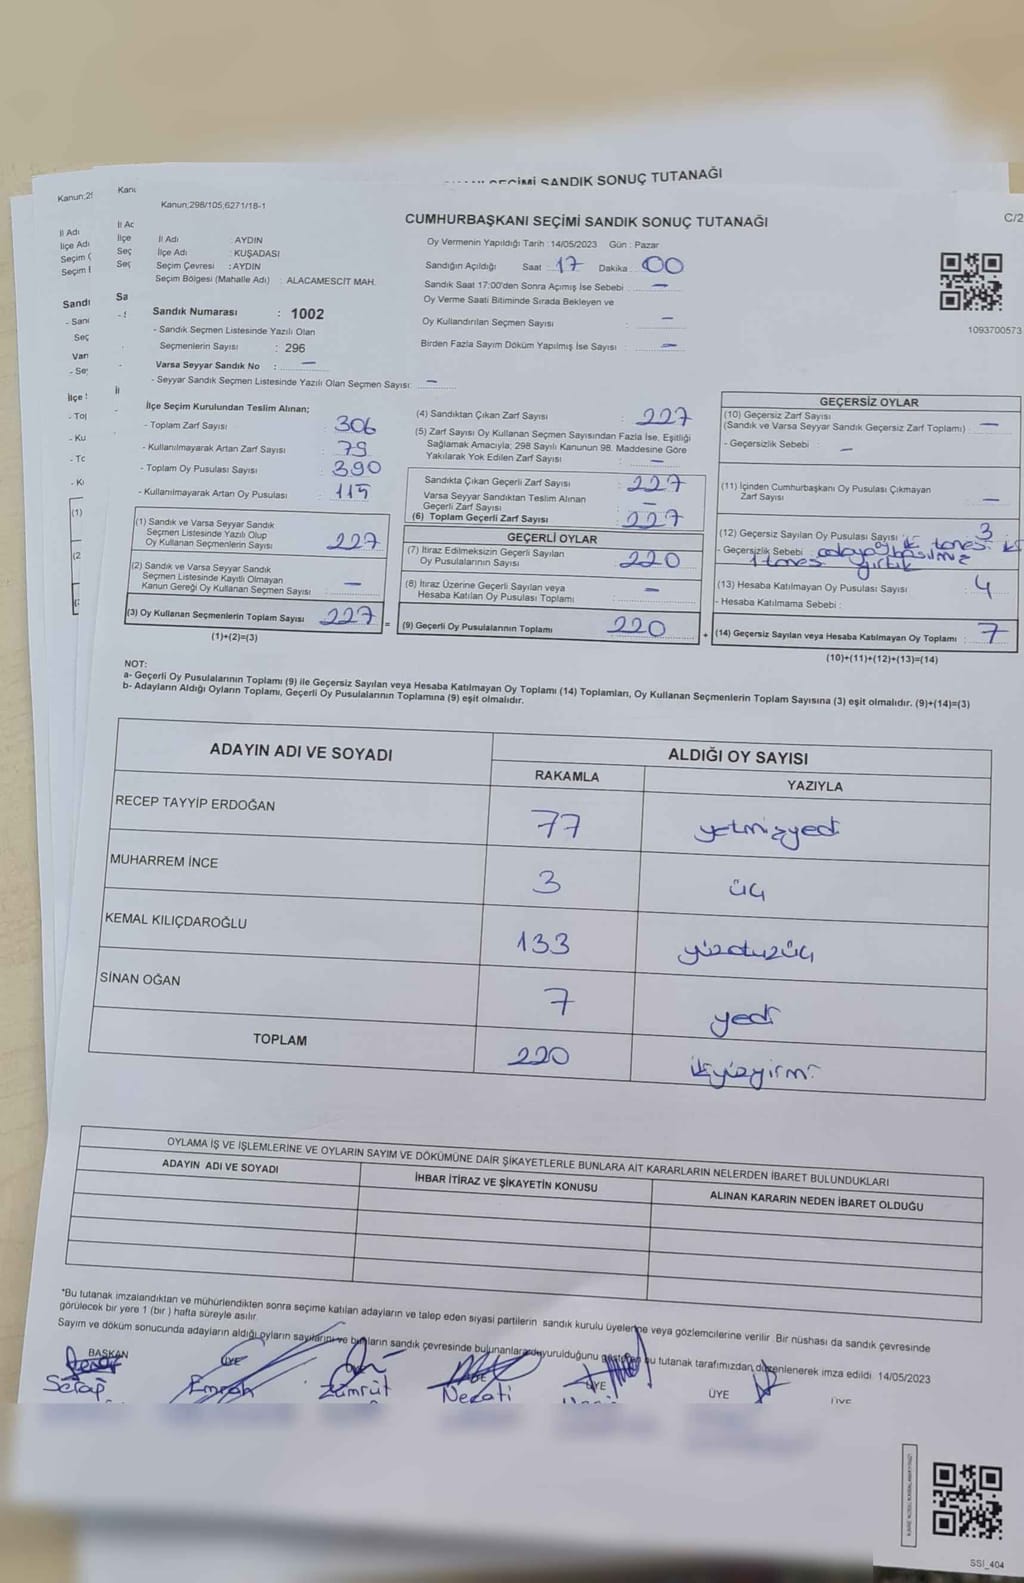 SEÇİMİ SANDIK SONUÇ TUTANAĞI
Kanun;298/105,6271/18-1
CUMHURBAŞKANI SEÇİMİ SANDIK SONUÇ TUTANAĞI
C/2
İl Adı : AYDIN
İlçe Adı : KUŞADASI
Seçim Çevresi : AYDIN
Seçim Bölgesi (Mahalle Adı) : ALACAMESCİT MAH.
Oy Vermenin Yapıldığı Tarih : 14/05/2023 Gün : Pazar
Sandığın Açıldığı Saat : 17 Dakika 00
Sandık Saat 17:00'den Sonra Açımış İse Sebebi : —
Oy Verme Saati Bitiminde Sırada Bekleyen ve
Oy Kullandırılan Seçmen Sayısı : —
Birden Fazla Sayım Döküm Yapılmış İse Sayısı : —
1093700573
Sandık Numarası : 1002
- Sandık Seçmen Listesinde Yazılı Olan
Seçmenlerin Sayısı : 296
Varsa Seyyar Sandık No : —
- Seyyar Sandık Seçmen Listesinde Yazılı Olan Seçmen Sayısı: —
İlçe Seçim Kurulundan Teslim Alınan;
- Toplam Zarf Sayısı : 306
- Kullanılmayarak Artan Zarf Sayısı : 79
- Toplam Oy Pusulası Sayısı : 390
- Kullanılmayarak Artan Oy Pusulası : 115
(1) Sandık ve Varsa Seyyar Sandık
Seçmen Listesinde Yazılı Olup
Oy Kullanan Seçmenlerin Sayısı : 227
(2) Sandık ve Varsa Seyyar Sandık
Seçmen Listesinde Kayıtlı Olmayan
Kanun Gereği Oy Kullanan Seçmen Sayısı : —
(3) Oy Kullanan Seçmenlerin Toplam Sayısı : 227
(1)+(2)=(3)
=
(4) Sandıktan Çıkan Zarf Sayısı : 227
(5) Zarf Sayısı Oy Kullanan Seçmen Sayısından Fazla İse, Eşitliği
Sağlamak Amacıyla; 298 Sayılı Kanunun 98. Maddesine Göre
Yakılarak Yok Edilen Zarf Sayısı : —
Sandıkta Çıkan Geçerli Zarf Sayısı : 227
Varsa Seyyar Sandıktan Teslim Alınan
Geçerli Zarf Sayısı : —
(6) Toplam Geçerli Zarf Sayısı : 227
GEÇERLİ OYLAR
(7) İtiraz Edilmeksizin Geçerli Sayılan
Oy Pusulalarının Sayısı : 220
(8) İtiraz Üzerine Geçerli Sayılan veya
Hesaba Katılan Oy Pusulası Toplamı : —
(9) Geçerli Oy Pusulalarının Toplamı : 220
+
GEÇERSİZ OYLAR
(10) Geçersiz Zarf Sayısı
(Sandık ve Varsa Seyyar Sandık Geçersiz Zarf Toplamı) : —
- Geçersizlik Sebebi : —
(11) İçinden Cumhurbaşkanı Oy Pusulası Çıkmayan
Zarf Sayısı : —
(12) Geçersiz Sayılan Oy Pusulası Sayısı : 3
- Geçersizlik Sebebi
1 tanesi yırtık
(13) Hesaba Katılmayan Oy Pusulası Sayısı : 4
- Hesaba Katılmama Sebebi :
(14) Geçersiz Sayılan veya Hesaba Katılmayan Oy Toplamı : 7
(10)+(11)+(12)+(13)=(14)
NOT:
a- Geçerli Oy Pusulalarının Toplamı (9) ile Geçersiz Sayılan veya Hesaba Katılmayan Oy Toplamı (14) Toplamları, Oy Kullanan Seçmenlerin Toplam Sayısına (3) eşit olmalıdır. (9)+(14)=(3)
b- Adayların Aldığı Oyların Toplamı, Geçerli Oy Pusulalarının Toplamına (9) eşit olmalıdır.
ADAYIN ADI VE SOYADI
ALDIĞI OY SAYISI
RAKAMLA YAZIYLA
RECEP TAYYİP ERDOĞAN 77 yetmişyedi
MUHARREM İNCE 3 üç
KEMAL KILIÇDAROĞLU 133 yüzotuzüç
SİNAN OĞAN 7 yedi
TOPLAM 220 ikiyüzyirmi
OYLAMA İŞ VE İŞLEMLERİNE VE OYLARIN SAYIM VE DÖKÜMÜNE DAİR ŞİKAYETLERLE BUNLARA AİT KARARLARIN NELERDEN İBARET BULUNDUKLARI
ADAYIN ADI VE SOYADI İHBAR İTİRAZ VE ŞİKAYETİN KONUSU ALINAN KARARIN NEDEN İBARET OLDUĞU
*Bu tutanak imzalandıktan ve mühürlendikten sonra seçime katılan adayların ve talep eden siyasi partilerin sandık kurulu üyelerine veya gözlemcilerine verilir. Bir nüshası da sandık çevresinde
görülecek bir yere 1 (bir ) hafta süreyle asılır.
Sayım ve döküm sonucunda adayların aldığı oyların sayılarını ve bunların sandık çevresinde bulunanlara duyurulduğunu gösteren bu tutanak tarafımızdan düzenlenerek imza edildi. 14/05/2023
BAŞKAN ÜYE ÜYE ÜYE ÜYE ÜYE
Serap Emrah Zümrüt Necati
SSI_404